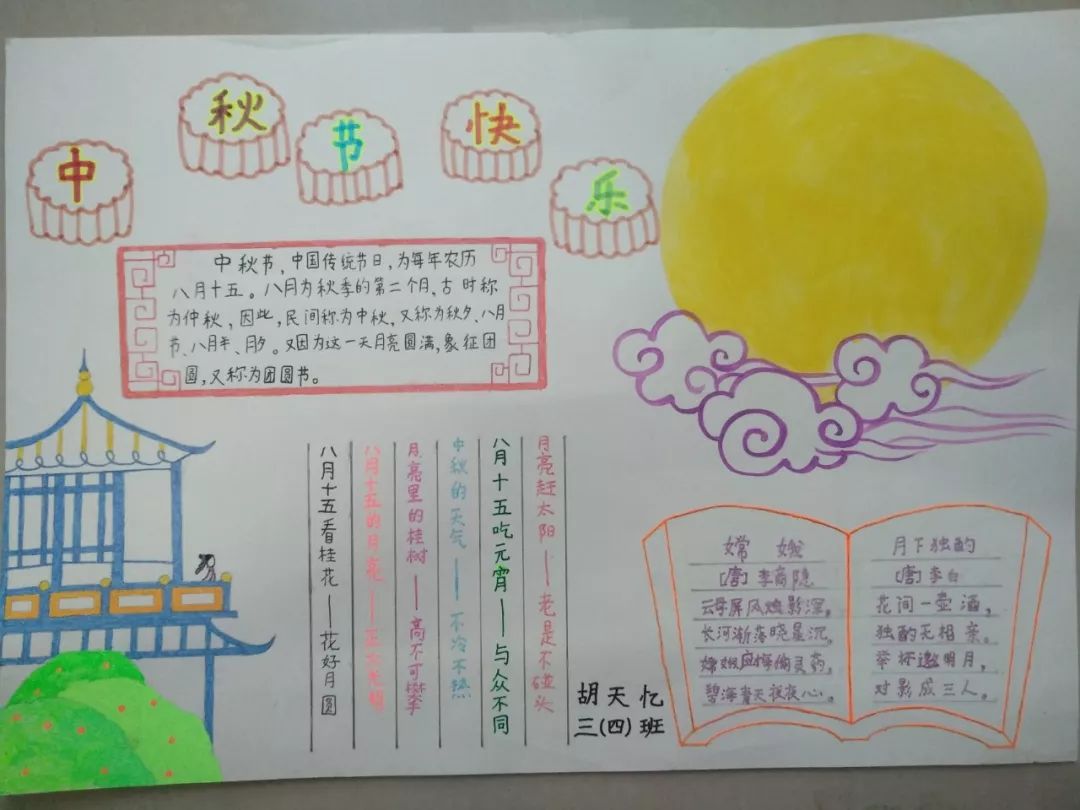 中秋节快乐
中秋节,中国传统节日,为每年农历
八月十五。八月为秋季的第二个月、古时称
为仲秋,因此,民间称为中秋,又称为秋夕、八月
节、八月半、月夕。又因为这一天月亮圆满,象征团
圆,又称为团圆节。
月亮赶太阳——老是不碰头
八月十五吃元宵——与众不同
中秋的天气——不冷不热
月亮里的桂树——高不可攀
八月十五的月亮——正大光明
八月十五看桂花——花好月圆
胡天忆
三(四)班
嫦娥
[唐]李商隐
云母屏风烛影深,
长河渐落晓星沉。
嫦娥应悔偷灵药,
碧海青天夜夜心。
月下独酌
[唐]李白
花间一壶酒,
独酌无相亲。
举杯邀明月,
对影成三人。